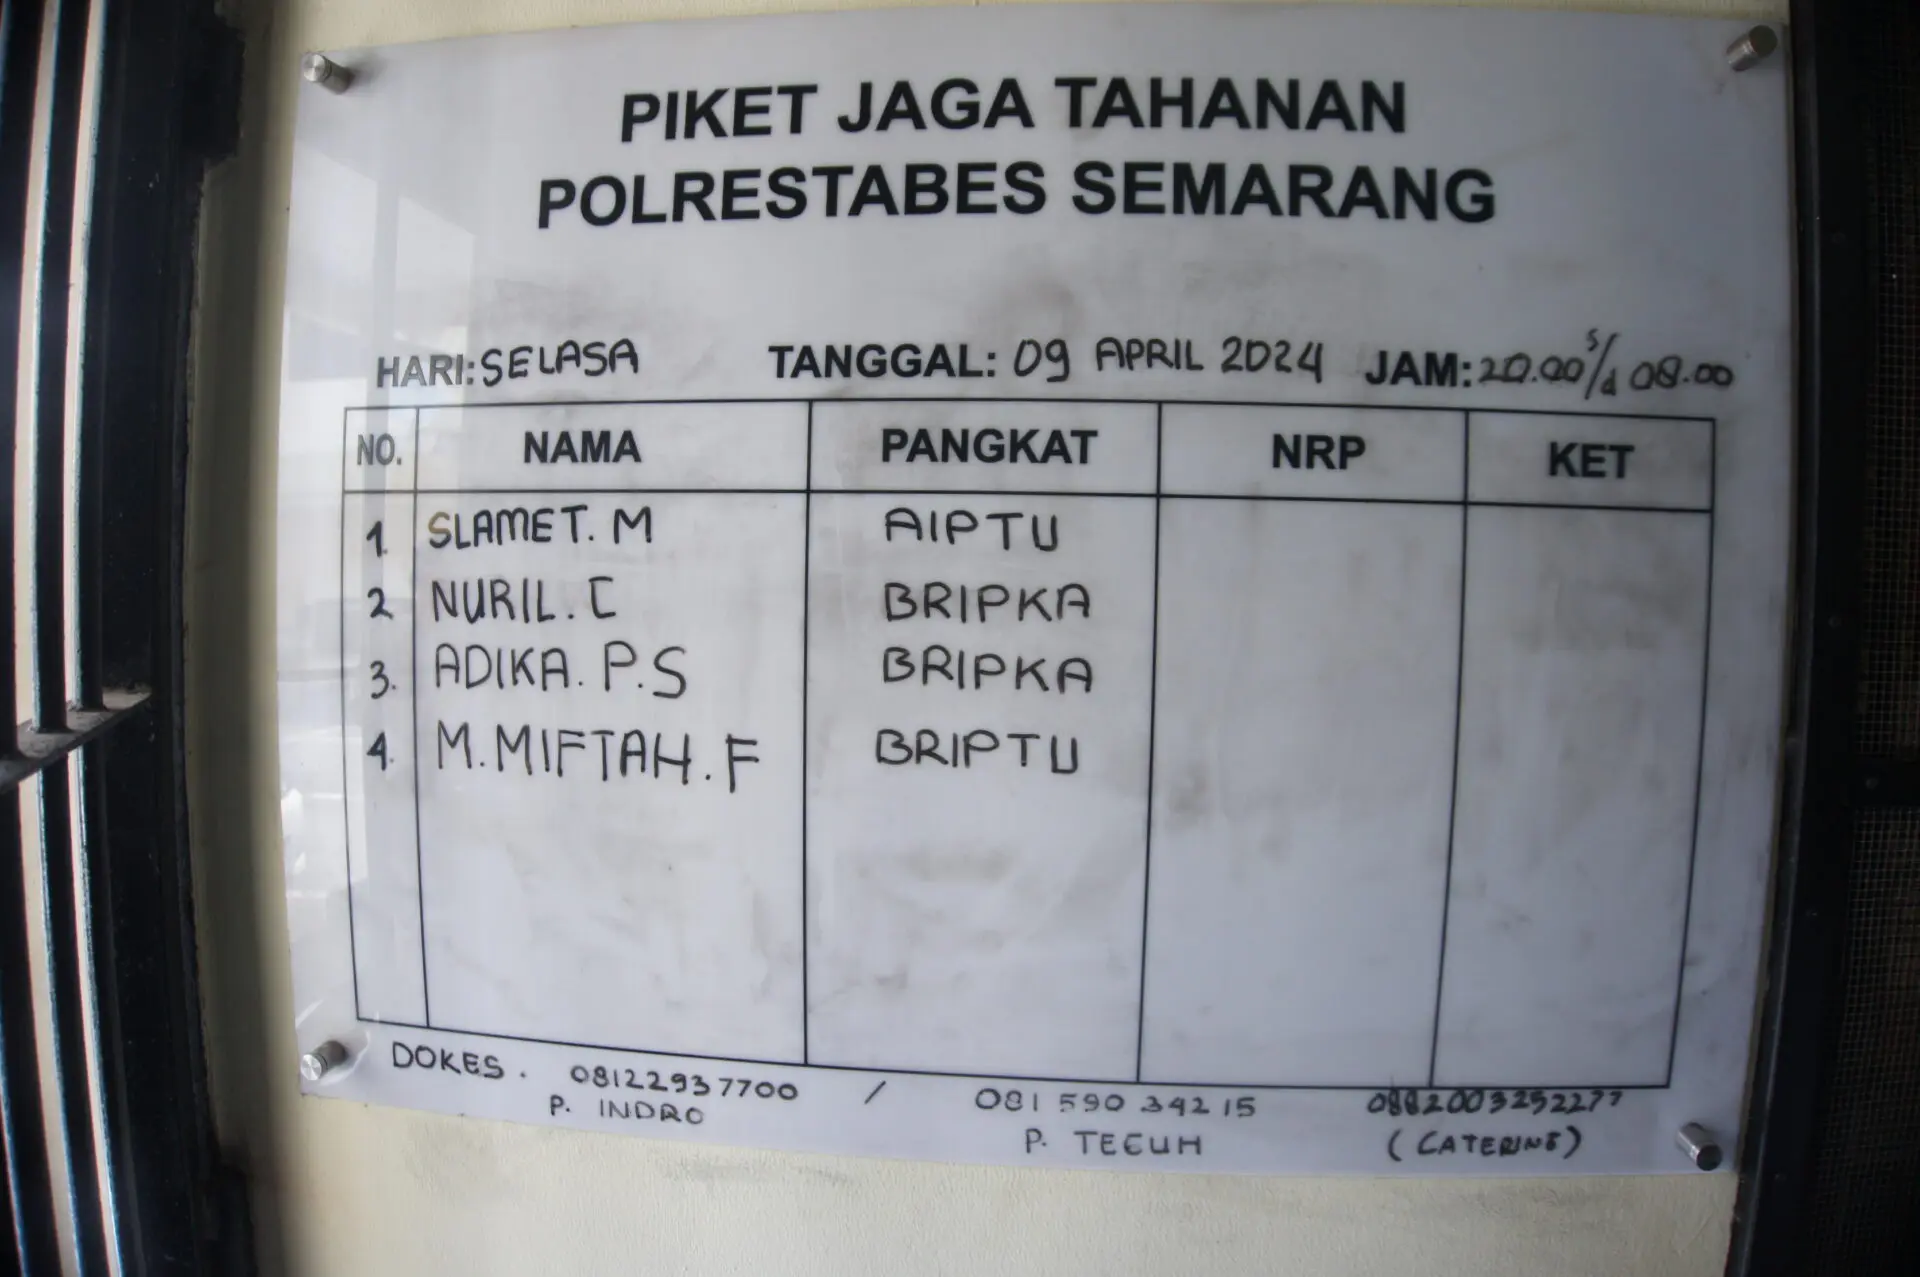 PIKET JAGA TAHANAN
POLRESTABES SEMARANG
HARI: SELASA TANGGAL: 09 APRIL 2024 JAM: 20.00 s/d 08.00
NO. NAMA PANGKAT NRP KET
1. SLAMET. M AIPTU
2 NURIL. C BRIPKA
3. ADIKA. P.S BRIPKA
4. M.MIFTAH. F BRIPTU
DOKES. 08122937700 / 081 590 342 15 0882003252277
P. INDRO P. TEGUH (CATERING)